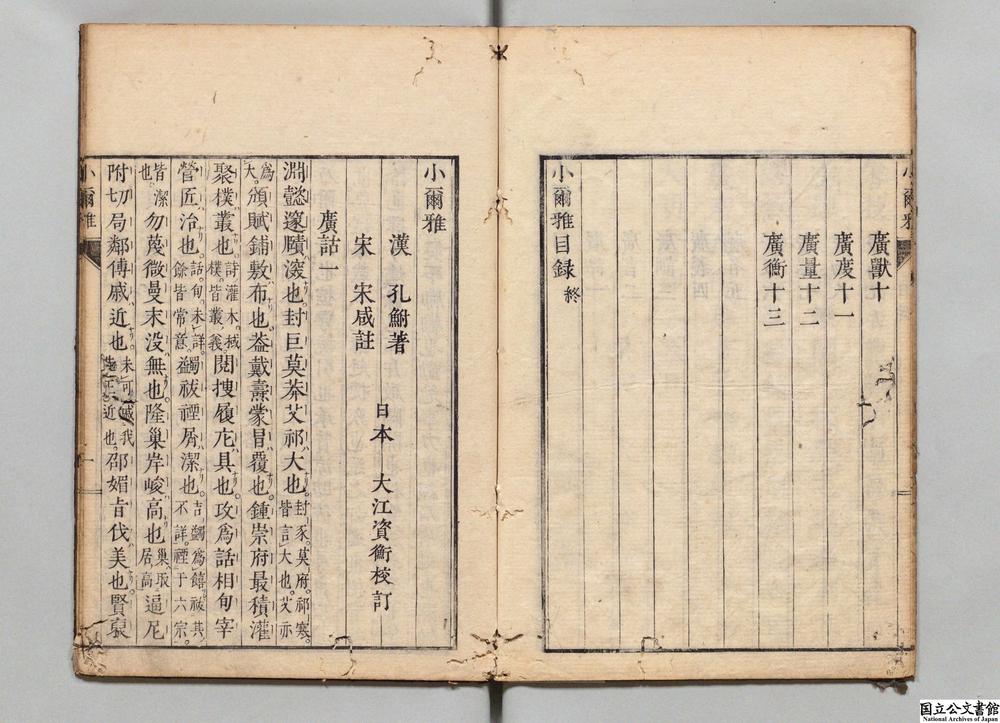 廣獸十
廣度十一
廣量十二
廣衡十三
小爾雅目録 終
小爾雅
小爾雅
漢 孔鮒著
宋 宋咸註
日本 大江資衡校訂
廣詁一
淵懿邃賾深也封巨莫莽艾祁大也封豕莫府祁寒皆言大也艾亦
爲大頒賦鋪敷布也葢戴燾蒙冒覆也鍾崇府最積灌
聚樸叢也詩灌木棫樸皆叢義閱捜履庀具也攻爲話相旬宰
營匠治也話旬未詳餘皆常意蠲祓禋屑潔也吉蠲爲饎祓其不詳禋于六宗
皆潔也勿蔑微曼末没無也隆巢岸峻高也巢取居高逼尼
附切局鄰傅戚近也未可戚我近也邵媚旨伐美也賢
小爾雅
一
国立公文書館
National Archives of Japan